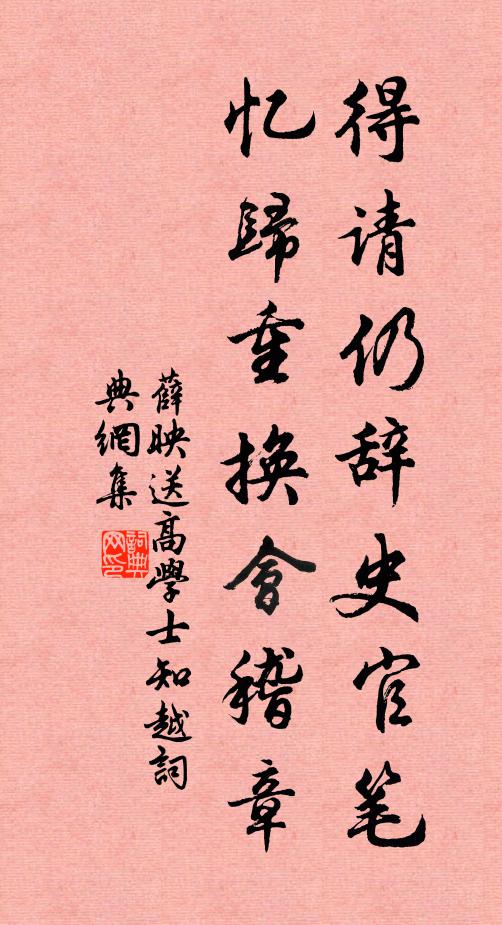 得请仍辞史官笔
忆歸重换會稽章
薛映送高學士知越詞
典網集
詞典
网印